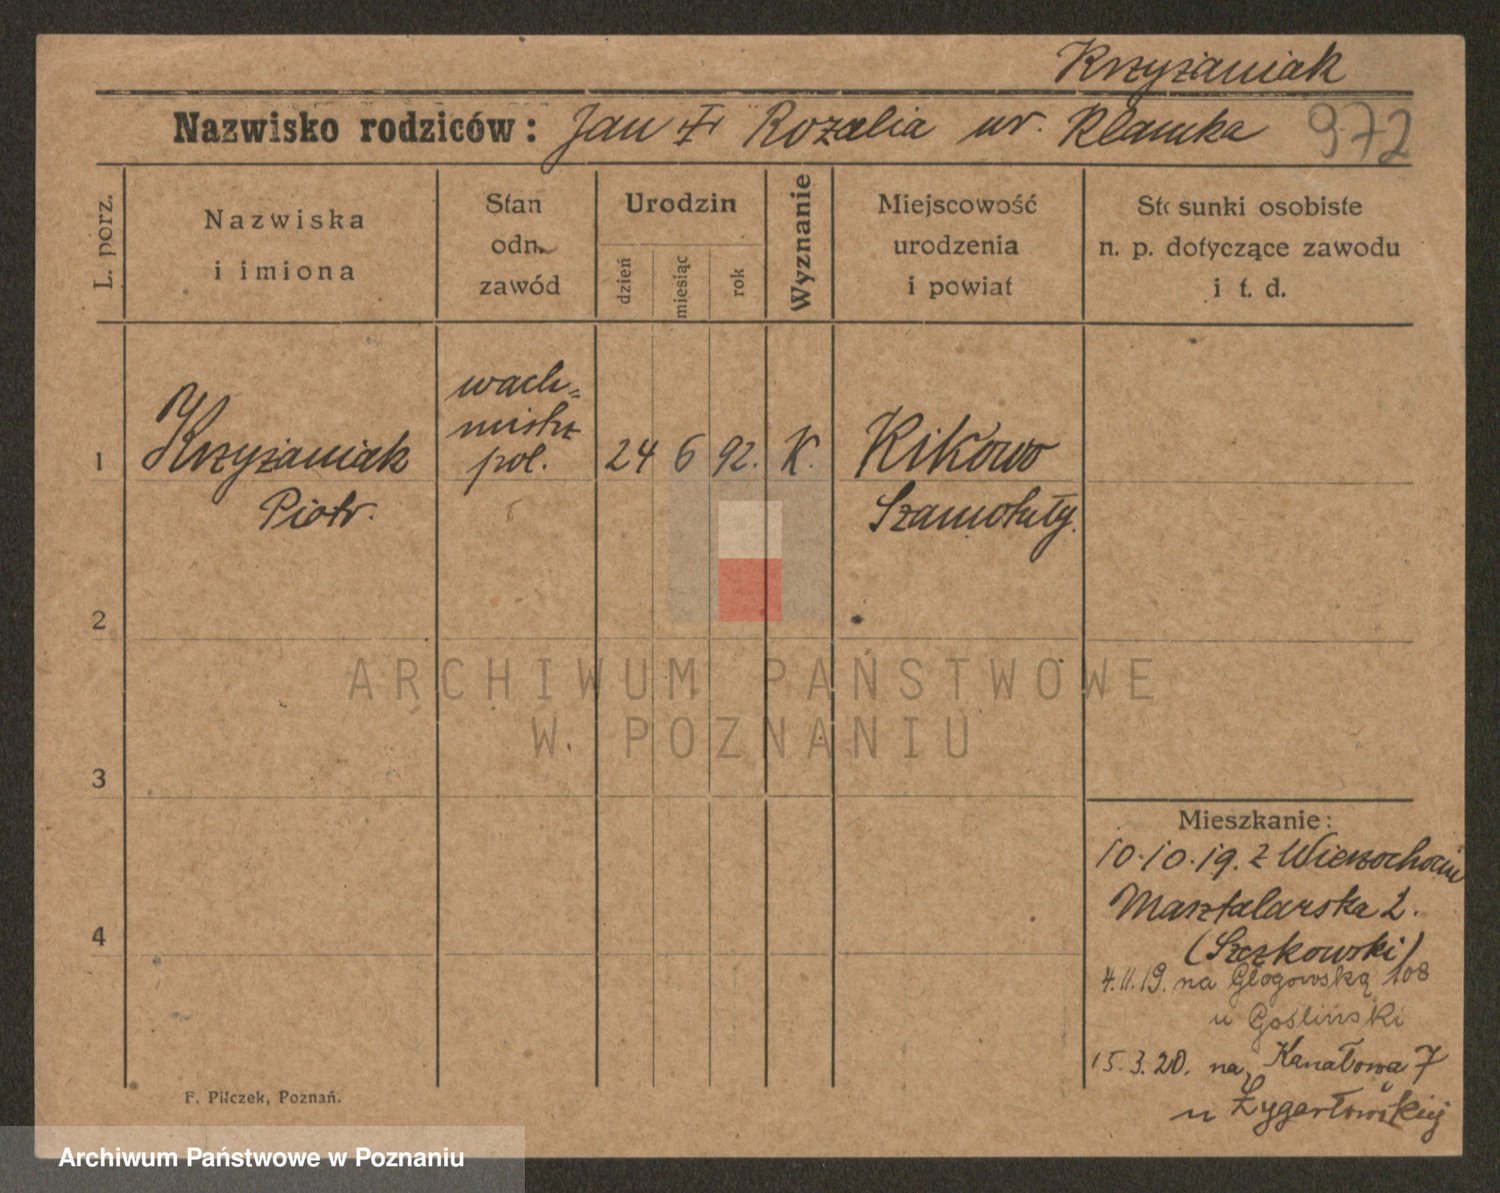 Krzyżaniak
Nazwisko rodziców: Jan Rozalia ur. Klamka
972
L. porz.
Nazwiska
i imiona
Stan
odn.
zawód
Urodzin
dzień
miesiąc
rok
Wyznanie
Miejscowość
urodzenia
i powiat
Stosunki osobiste
n. p. dotyczące zawodu
i t. d.
1
Krzyżaniak
Piotr.
wach-
mistrz
pol.
24 6 92. K.
Kikowo
Szamotuły.
2
3
4
ARCHIWUM PAŃSTWOWE
W POZNANIU
Mieszkanie:
10.10.19. z
Masztalarska 2.
4.11.19. na Głogowską 108
u Gośliński
15.3.20. na Kanałowa 7
u
F. Pilczek, Poznań.
Archiwum Państwowe w Poznaniu